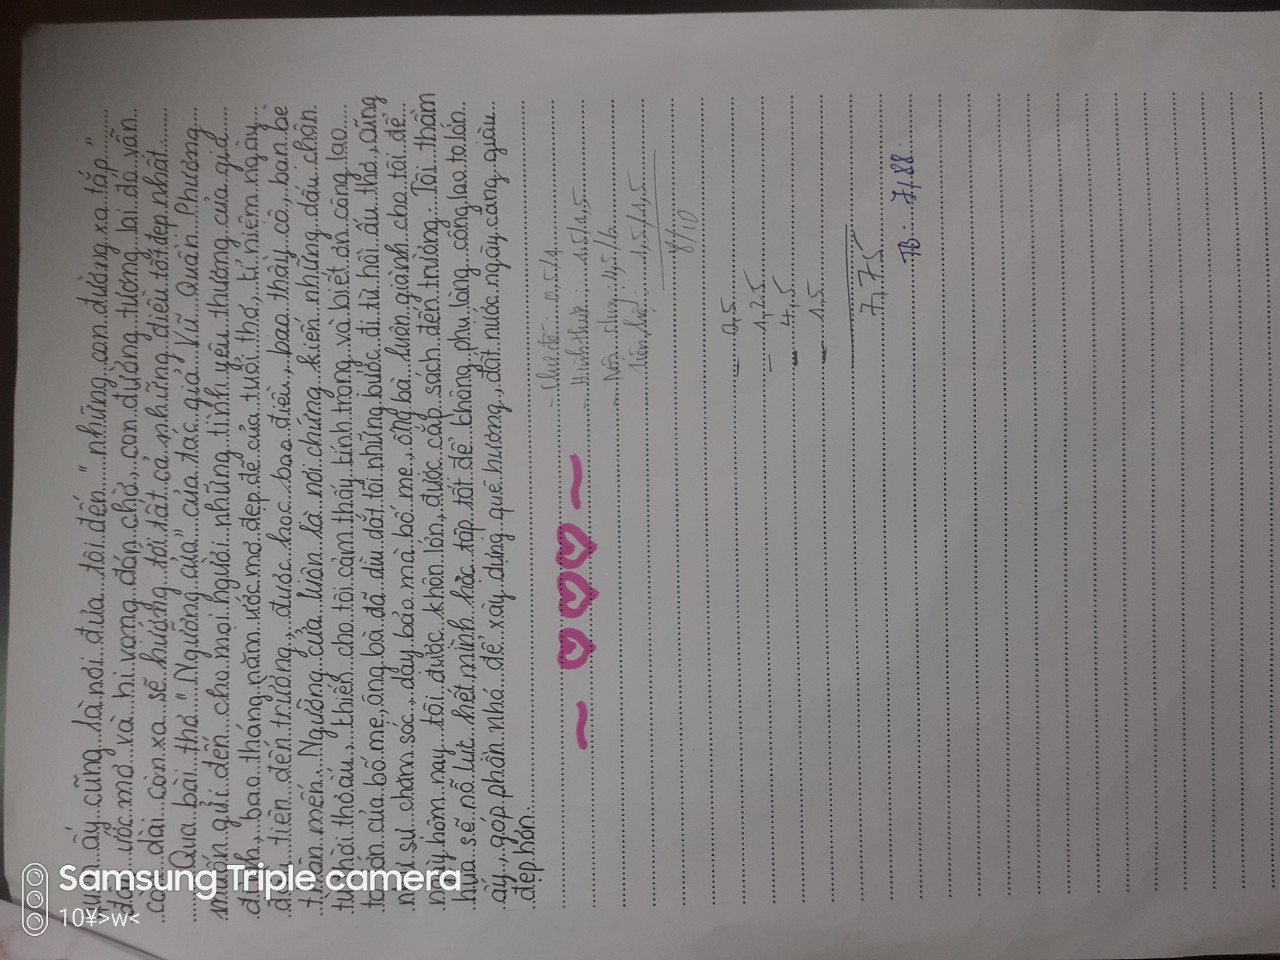 xuân ấy cũng là nơi đưa tôi đến "những con đường xa tắp"
đầy ước mơ và hi vọng đón chờ, con đường tương lai đó vẫn
còn dài còn xa sẽ hướng tới tất cả những điều tốt đẹp nhất
Qua bài thơ "Ngưỡng cửa" của tác giả Vũ Quần Phương
muốn gửi đến cho mọi người những tình yêu thương của gia
đình, bao tháng năm ước mơ đẹp đẽ của tuổi thơ, kỉ niệm ngày
đầu tiên đến trường, được học bao điều, bao thầy cô, bạn bè
thân mến. Ngưỡng cửa luôn là nơi chứng kiến những dấu chân
từ thời thơ ấu, khiến cho tôi cảm thấy kính trọng và biết ơn công lao
to lớn của bố mẹ, ông bà đã dìu dắt tôi những bước đi từ hồi ấu thơ, cũng
như sự chăm sóc, dạy bảo mà bố mẹ, ông bà luôn giành cho tôi để
ngày hôm nay tôi được khôn lớn, được cắp sách đến trường. Tôi thầm
hứa sẽ nỗ lực hết mình học tập tốt để không phụ lòng công lao to lớn
ấy, góp phần nhỏ để xây dựng quê hương, đất nước ngày càng giàu
đẹp hơn.
- Chủ đề: 0,5/1
- Hình thức: 1,5/1,5
- Nội dung: 4,5/6
1,5/1,5
8/10
- 0,5
- 1,25
- 4,5
- 1,5
7,75
TB: 7,88
Samsung Triple camera
10¥>w<